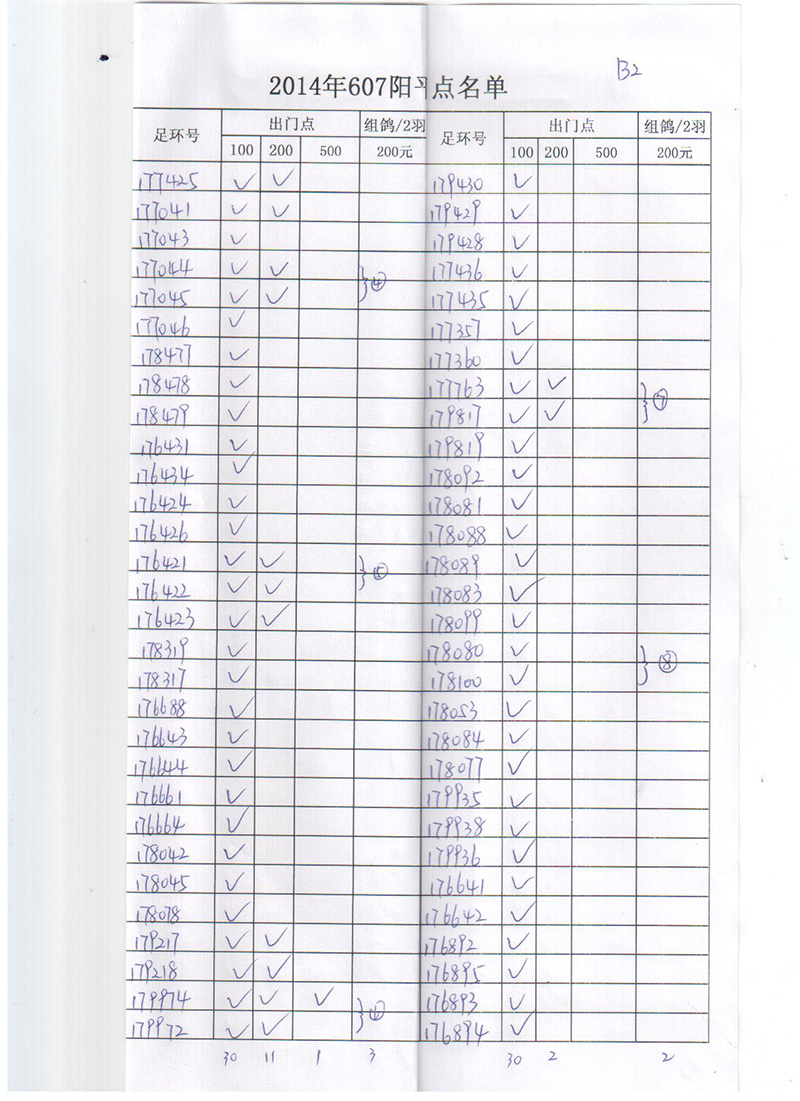 B2
2014年607阳平点名单
足环号 出门点 组鸽/2羽 足环号 出门点 组鸽/2羽
100 200 500 200元 100 200 500 200元
177425 ✓ ✓ 179430 ✓
177041 ✓ ✓ 179429 ✓
177043 ✓ 179428 ✓
177044 ✓ ✓ } ④ 177436 ✓
177045 ✓ ✓ 177435 ✓
177046 ✓ 177357 ✓
178477 ✓ 177360 ✓
178478 ✓ 177763 ✓ ✓ } ⑦
178479 ✓ 179817 ✓ ✓
176431 ✓ 179819 ✓
176434 ✓ 178092 ✓
176424 ✓ 178081 ✓
176426 ✓ 178088 ✓
176421 ✓ ✓ } 178089 ✓
176422 ✓ ✓ 178083 ✓
176423 ✓ ✓ 178099 ✓
178319 ✓ 178080 ✓ } ⑧
178317 ✓ 178100 ✓
176688 ✓ 178053 ✓
176643 ✓ 178084 ✓
176644 ✓ 178077 ✓
176661 ✓ 179935 ✓
176664 ✓ 179938 ✓
178042 ✓ 179936 ✓
178045 ✓ 176641 ✓
178078 ✓ 176642 ✓
179217 ✓ ✓ 176892 ✓
179218 ✓ ✓ 176895 ✓
179974 ✓ ✓ ✓ } 176893 ✓
179972 ✓ ✓ 176894 ✓
30 11 1 3 30 2 2